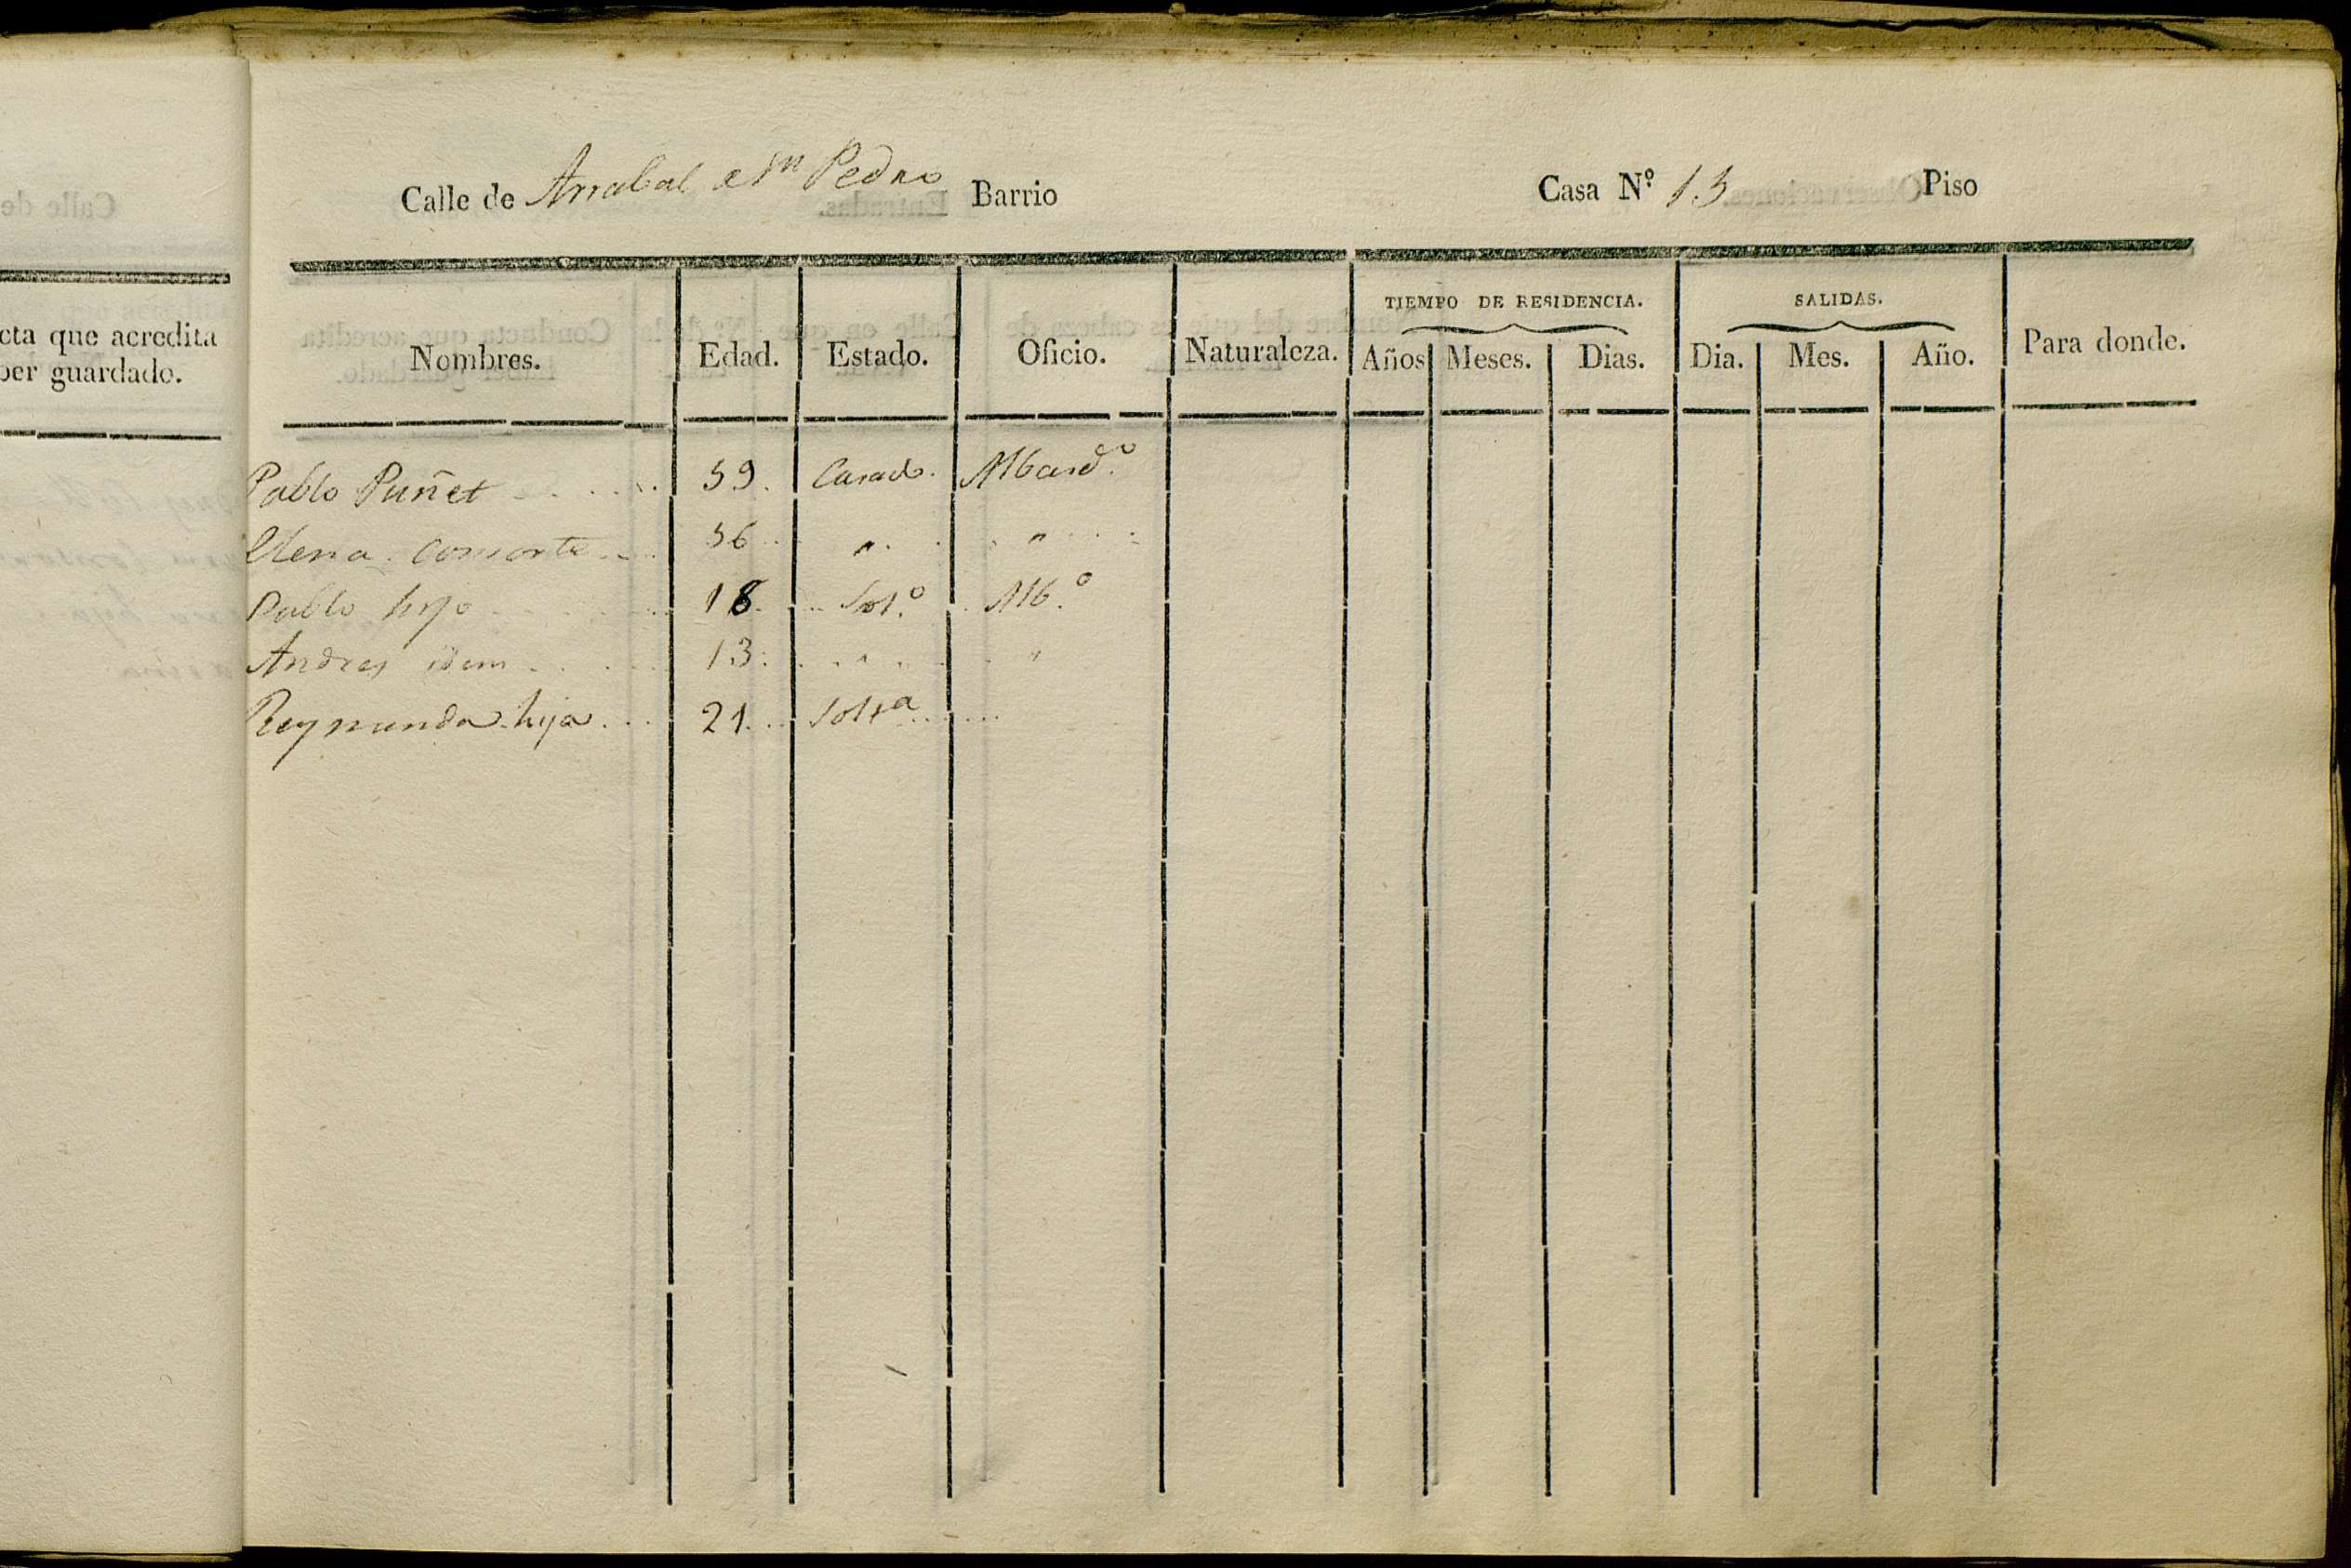 cta que acredita
ber guardado.
Calle de Arrabal de Sn Pedro Barrio Casa N.º 13 Piso
TIEMPO DE RESIDENCIA. SALIDAS.
Nombres. Edad. Estado. Oficio. Naturaleza. Años Meses. Dias. Dia. Mes. Año. Para donde.
Pablo Puñet 59. Casado. Albard.º
Elena consorte 56 " "
Pablo hijo 18 Sol.º Alb.º
Andres idem 13 " "
Reymunda hija 21 Soltª